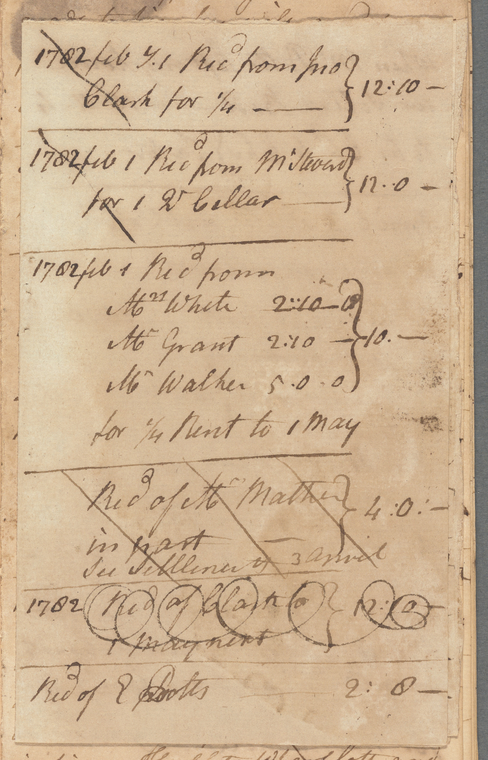 1782 feb Y.1 Recd from Jno
Clark for 1/4 — 12:10 —
1782 feb 1 Recd from Mr Steward
for 1 Qr Cellar — 12.0 —
1782 feb 1 Recd from
Mrs White 2:10 — 0
Mr Grant 2:10 — 10. —
Mr Walker 5.0.0
for 1/4 Rent to 1 May
Recd of Mr Mather
in part — 4:0:—
See Settlement 3 April
1782 Recd of Clark to 12:10 —
1 may next
Recd of E 2: 8 —